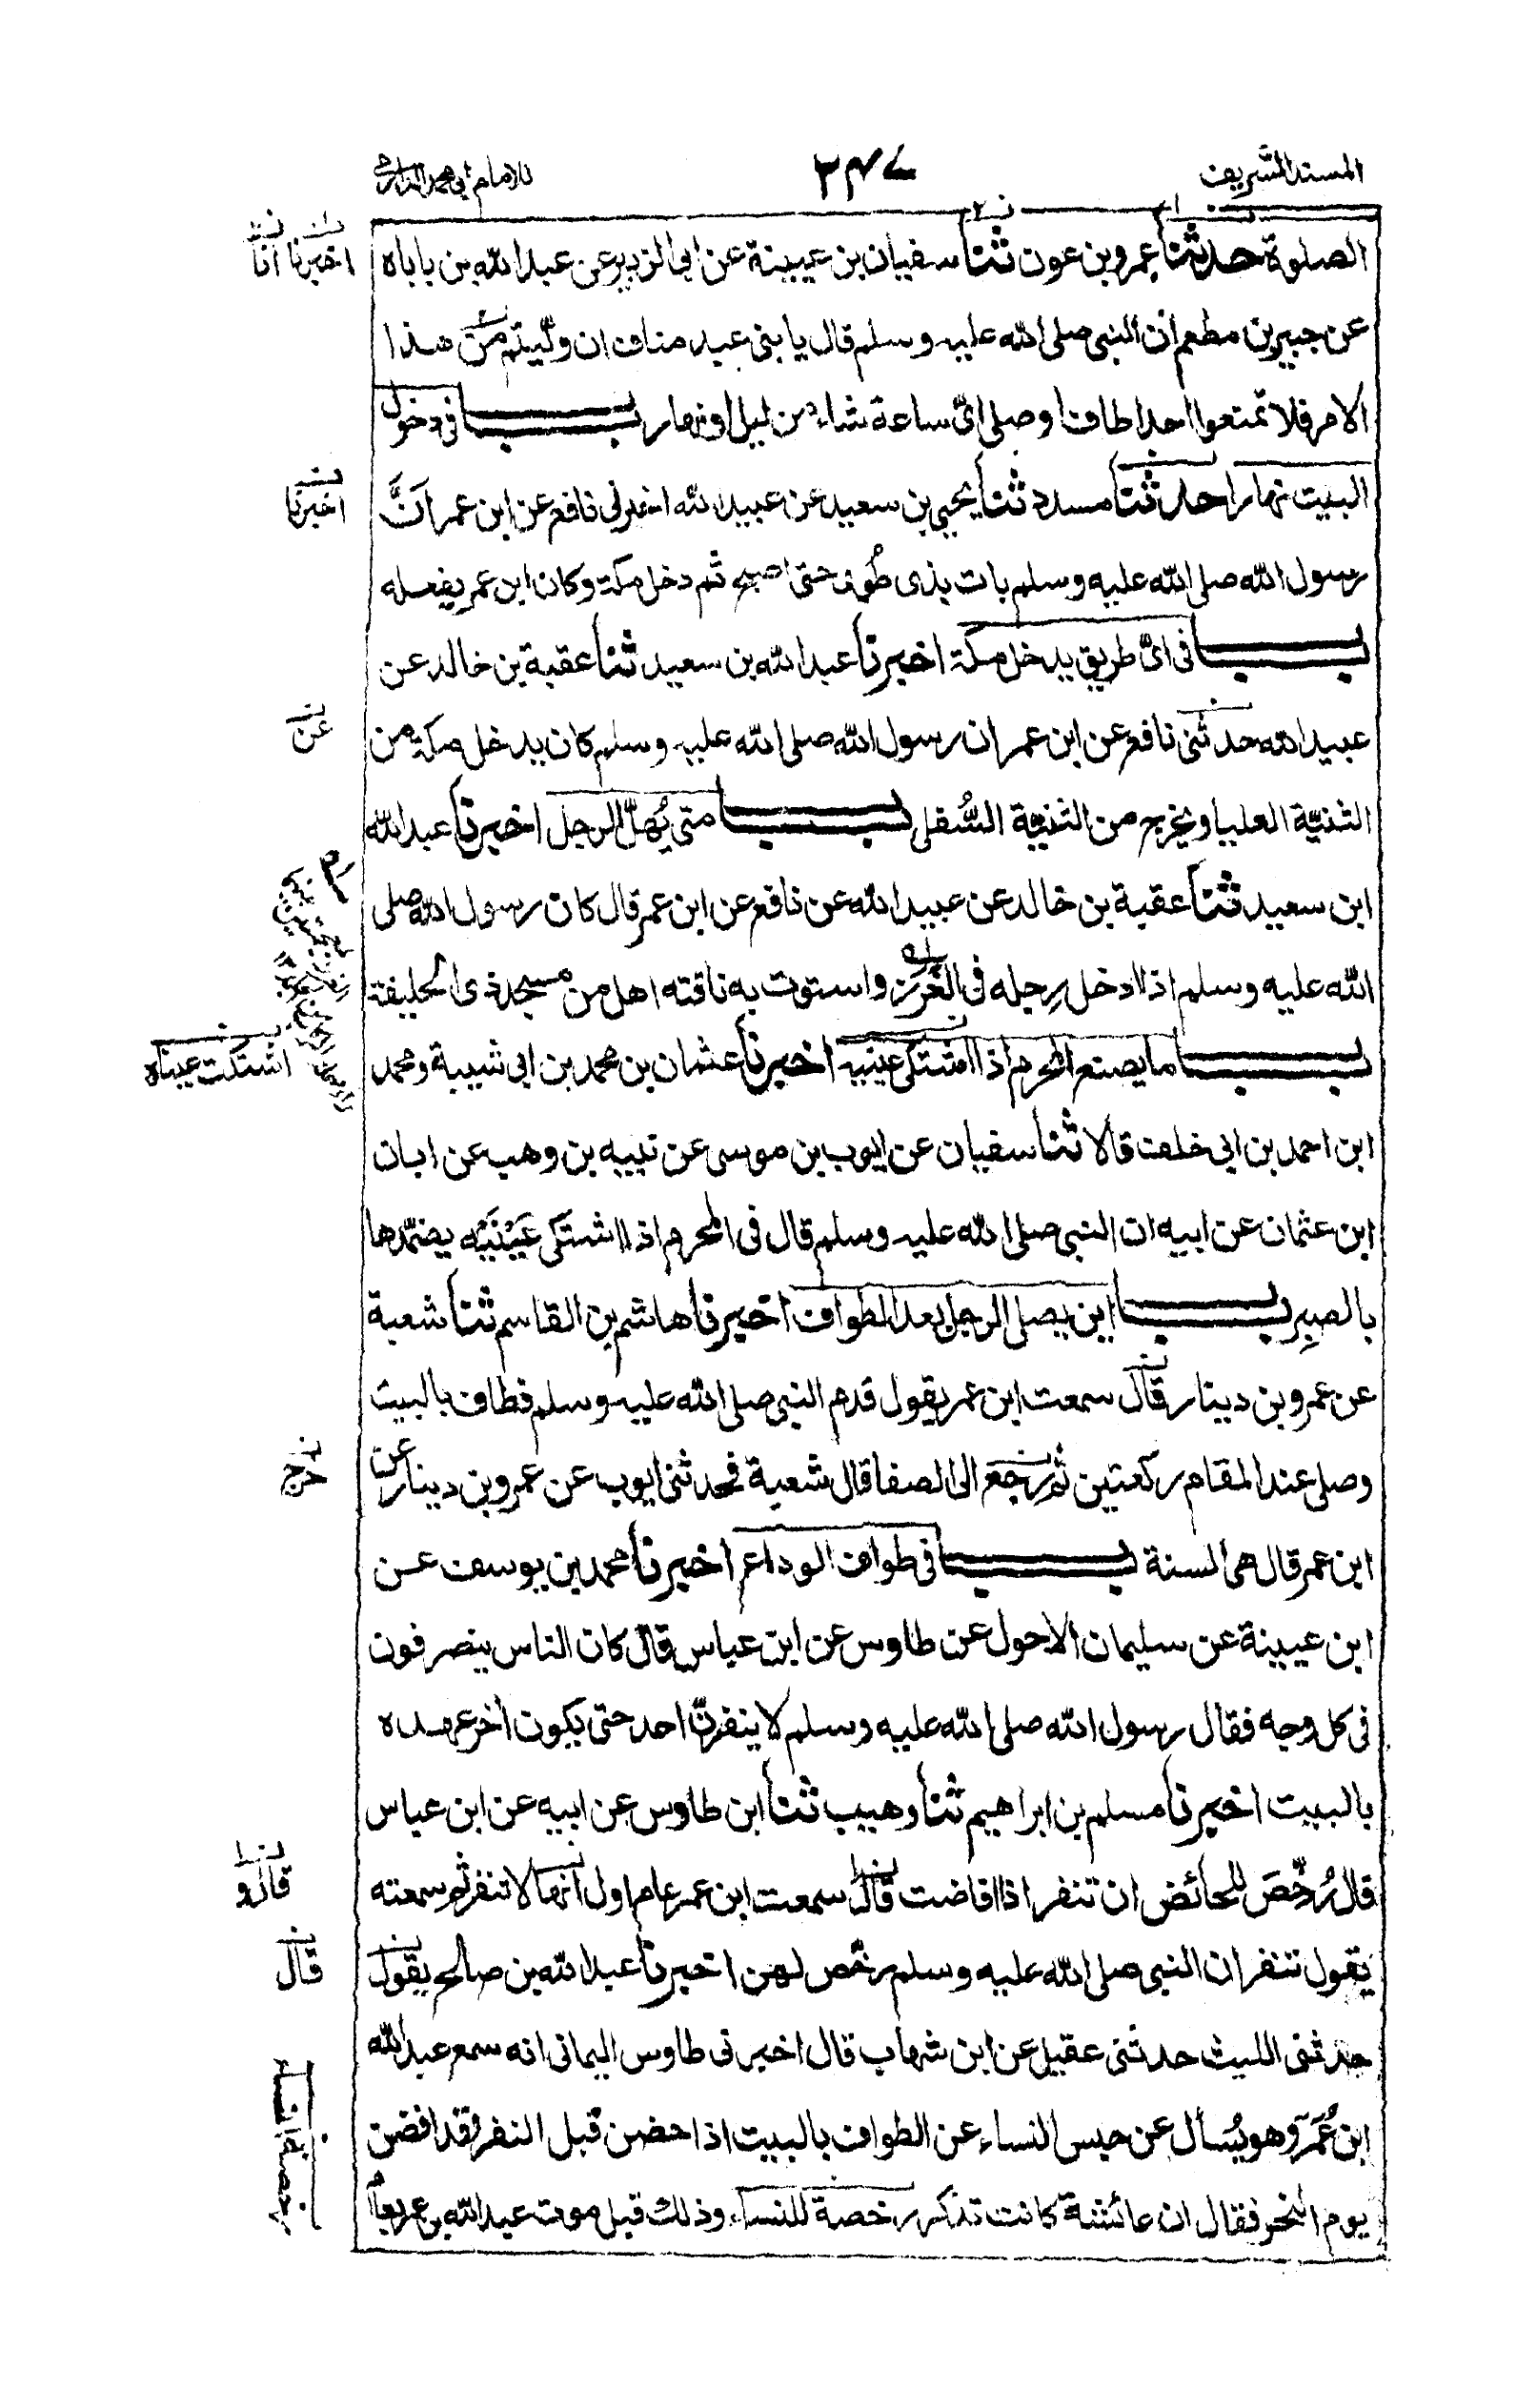 المسند الشريف
٢٤٧
للامام ابي محمد الدارمي
الصلوة حدثنا عمرو بن عون ثنا سفيان بن عيينة عن ابى الزبير عن عبد الله بن باباه
اخبرنا انا
عن جبير بن مطعم أن النبى صلى الله عليه وسلم قال يا بنى عبد مناف ان وليتم من هذا
الامر فلا تمنعوا احدا طاف او صلى اىّ ساعة شاء من ليل او نهار باب فى دخول
البيت نهارا حدثنا مسدد ثنا يحيى بن سعيد عن عبيد الله اخبرنى نافع عن ابن عمر اَنَّ
اخبرنا
رسول الله صلى الله عليه وسلم بات بذى طُوى حتى اصبح ثم دخل مكة وكان ابن عمر يفعله
باب فى اىّ طريق يدخل مكة اخبرنا عبد الله بن سعيد ثنا عقبة بن خالد عن
عبيد الله حدثنى نافع عن ابن عمر ان رسول الله صلى الله عليه وسلم كان يدخل مكة من
عن
الثنيّة العليا ويخرج من الثنيّة السُّفلى باب متى يُهلّ الرجل اخبرنا عبد الله
ابن سعيد ثنا عقبة بن خالد عن عبيد الله عن نافع عن ابن عمر قال كان رسول الله صلى
الله عليه وسلم اذا ادخل رِجله فى الغَرْز واستوت به ناقته اهل من مسجد ذى الحليفة
باب ما يصنع المحرم اذا اشتكى عينيه اخبرنا عثمان بن محمد بن ابى شيبة ومحمد
اشتكت عيناه
ابن احمد بن ابى خلف قالا ثنا سفيان عن ايوب بن موسى عن نبيه بن وهب عن ابان
ابن عثمان عن ابيه ان النبى صلى الله عليه وسلم قال فى المحرم اذا اشتكى عَيْنَيْه يضمّدها
بالصبِر باب اين يصلى الرجل بعد الطواف اخبرنا هاشم بن القاسم ثنا شعبة
عن عمرو بن دينار قال سمعت ابن عمر يقول قدم النبى صلى الله عليه وسلم فطاف بالبيت
وصلى عند المقام ركعتين ثم رجع الى الصفا قال شعبة فحدثنى ايوب عن عمرو بن دينار عن
خرج
ابن عمر قال هى السنة باب فى طواف الوداع اخبرنا محمد بن يوسف عن
ابن عيينة عن سليمان الاحول عن طاوس عن ابن عباس قال كان الناس ينصرفون
فى كل وجه فقال رسول الله صلى الله عليه وسلم لا ينفرنّ احد حتى يكون أخر عهده
بالبيت اخبرنا مسلم بن ابراهيم ثنا وهيب ثنا ابن طاوس عن ابيه عن ابن عباس
قال رُخّصَ للحائض ان تنفر اذا افاضت قال سمعت ابن عمر عام اول انها لا تنفر ثم سمعته
قال و
يقول تنفر ان النبى صلى الله عليه وسلم رخّص لهن اخبرنا عبد الله بن صالح يقول
قال
حدثنى الليث حدثنى عقيل عن ابن شهاب قال اخبرنى طاوس اليمانى انه سمع عبد الله
ابن عُمَرَ وهو يُسأل عن حبس النساء عن الطواف بالبيت اذا حضن قبل النفر وقد افضن
يوم النحر فقال ان عائشة كانت تذكر رخصة للنساء وذلك قبل موت عبد الله بن عمر بعام
رخصة النساء